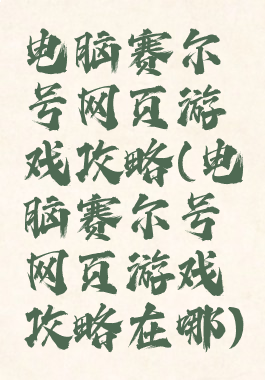 电脑赛尔
号网页游
戏攻略(电
脑赛尔号
网页游戏
攻略在哪)